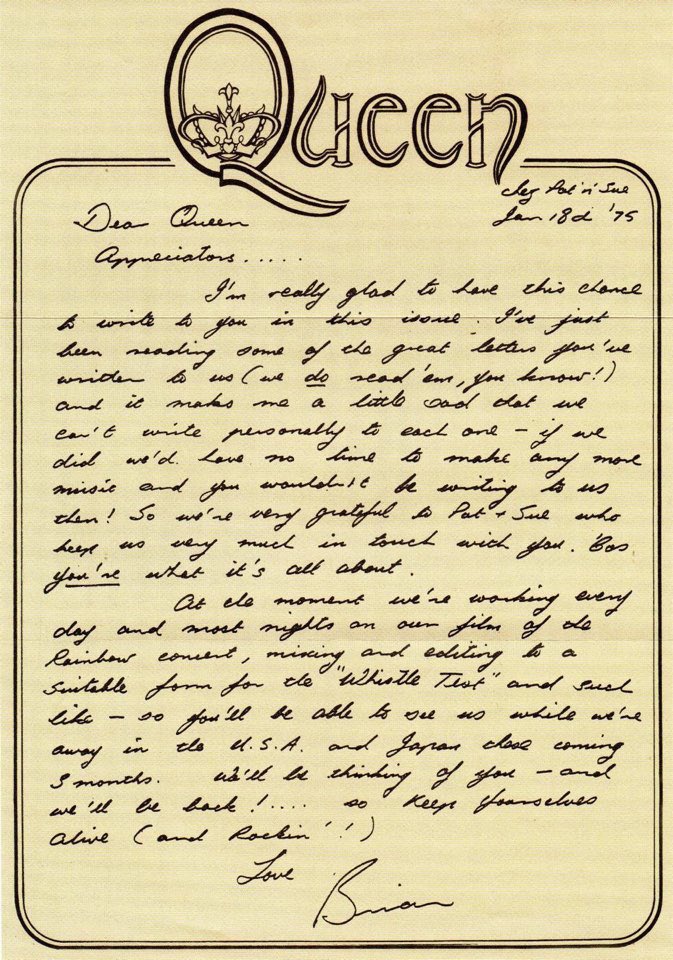 Queen
chez Pat 'n' Sue
Jan 18d '75
Dear Queen
Appreciators.....
I'm really glad to have this chance
to write to you in this issue. I've just
been reading some of the great letters you've
written to us (we do read 'em, you know!)
and it makes me a little sad that we
can't write personally to each one – if we
did we'd have no time to make any more
music and you wouldn't be writing to us
then! So we're very grateful to Pat + Sue who
keep us very much in touch with you. 'Cos
you're what it's all about.
At the moment we're working every
day and most nights on our film of the
Rainbow concert, mixing and editing to a
suitable form for the "Whistle Test" and such
like – so you'll be able to see us while we're
away in the U.S.A. and Japan these coming
3 months. We'll be thinking of you – and
we'll be back!.... so Keep Yourselves
Alive (and Rockin'!)
Love
Brian